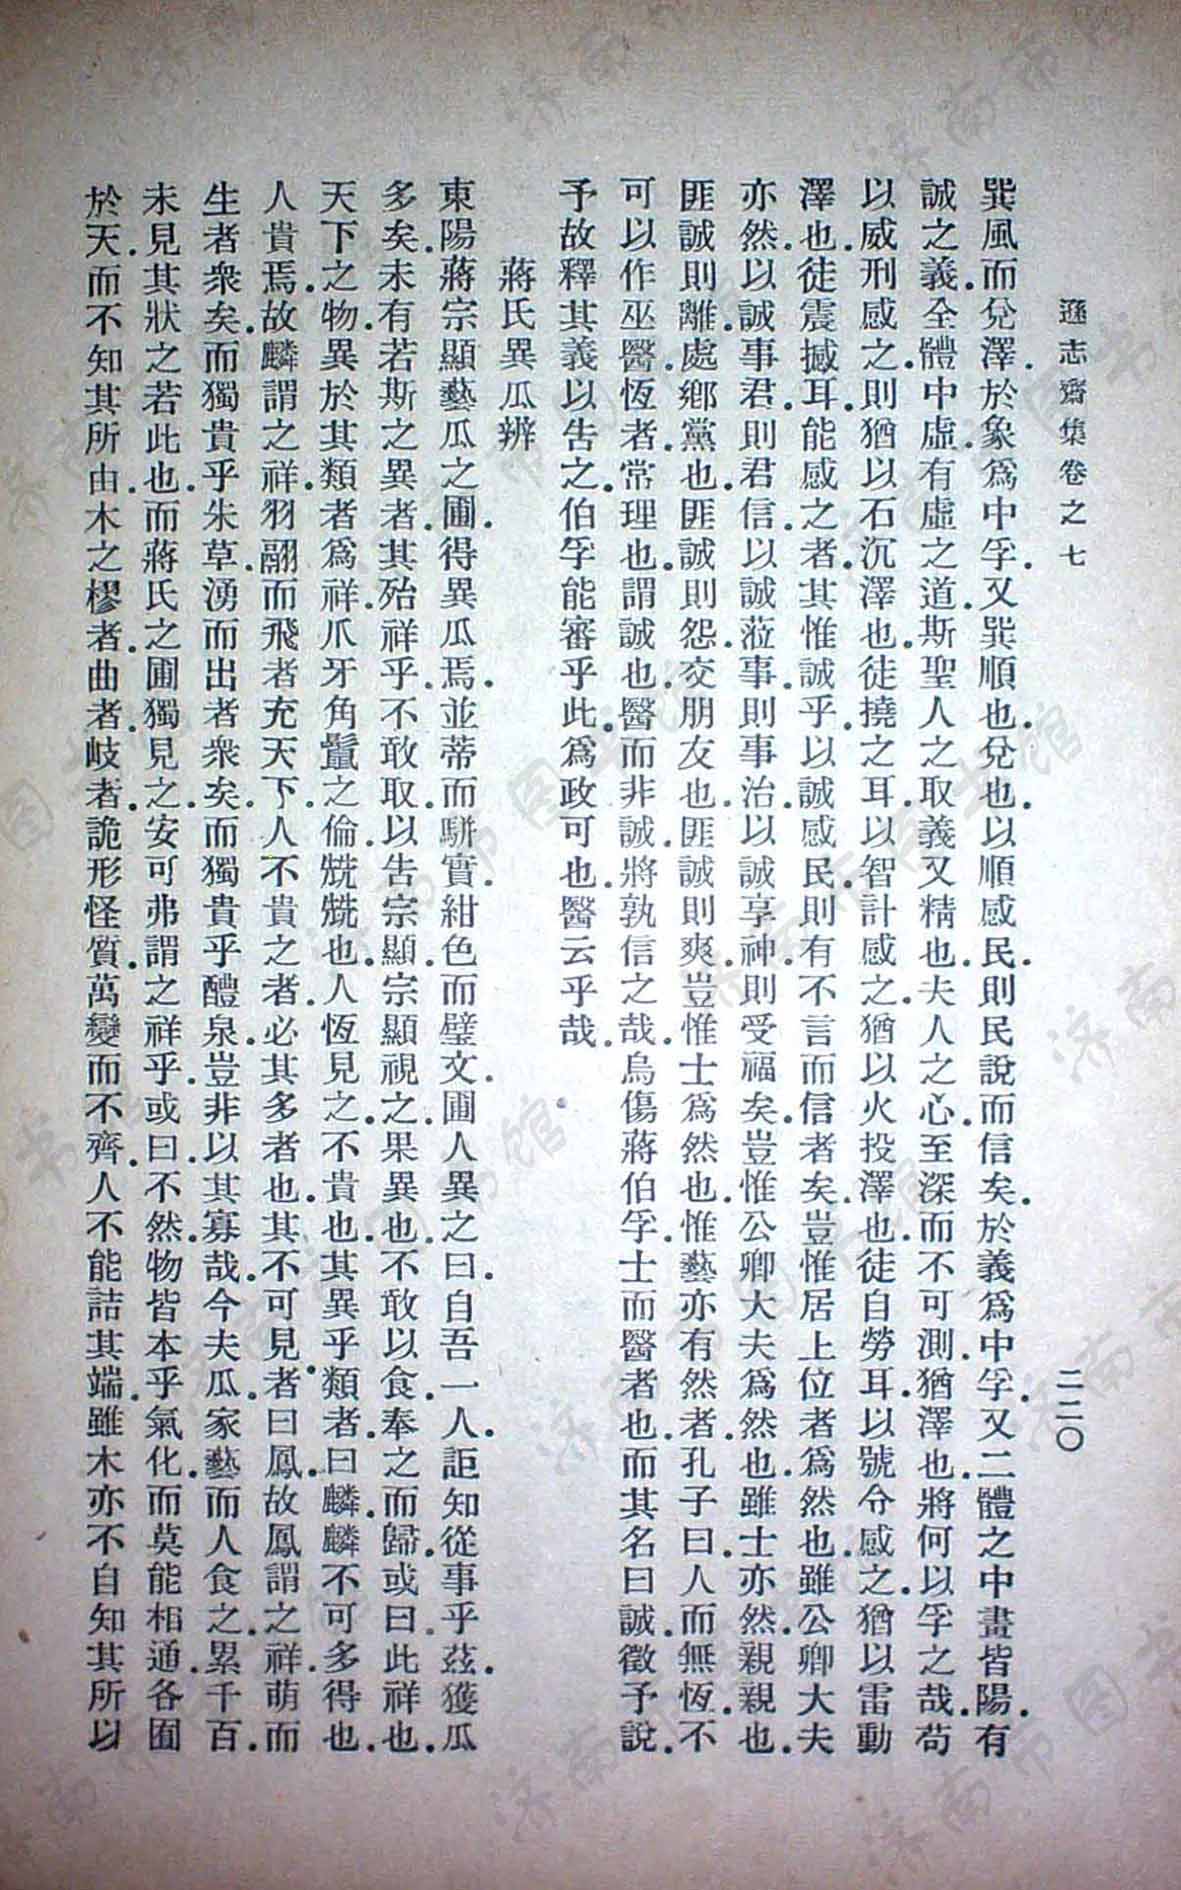 遜志齋集卷之七
二二〇
巽風而兌澤於象爲中孚又巽順也兌也以順感民則民說而信矣於義爲中孚又二體之中畫皆陽有
誠之義全體中虛有虛之道斯聖人之取義又精也夫人之心至深而不可測猶澤也將何以孚之哉苟
以威刑感之則猶以石沉澤也徒撓之耳以智計感之猶以火投澤也徒自勞耳以號令感之猶以雷動
澤也徒震撼耳能感之者其惟誠乎以誠感民則有不言而信者矣豈惟居上位者爲然也雖公卿大夫
亦然以誠事君則君信以誠蒞事則事治以誠享神則受福矣豈惟公卿大夫爲然也雖士亦然親親也
匪誠則離處鄉黨也匪誠則怨交朋友也匪誠則爽豈惟士爲然也惟藝亦有然者孔子曰人而無恆不
可以作巫醫恆者常理也謂誠也醫而非誠將孰信之哉烏傷蔣伯孚士而醫者也而其名曰誠徵予說
予故釋其義以告之伯孚能審乎此爲政可也醫云乎哉
蔣氏異瓜辨
東陽蔣宗顯藝瓜之圃得異瓜焉並蒂而駢實紺色而璧文圃人異之曰自吾一人詎知從事乎茲獲瓜
多矣未有若斯之異者其殆祥乎不敢取以告宗顯宗顯視之果異也不敢以食奉之而歸或曰此祥也
天下之物異於其類者爲祥爪牙角鬣之倫兟兟也人恆見之不貴也其異乎類者曰麟麟不可多得也
人貴焉故麟謂之祥羽翮而飛者充天下人不貴之者必其多者也其不可見者曰鳳故鳳謂之祥萌而
生者衆矣而獨貴乎朱草湧而出者衆矣而獨貴乎醴泉豈非以其寡哉今夫瓜家藝而人食之累千百
未見其狀之若此也而蔣氏之圃獨見之安可弗謂之祥乎或曰不然物皆本乎氣化而莫能相通各囿
於天而不知其所由木之樛者曲者岐者詭形怪質萬變而不齊人不能詰其端雖木亦不自知其所以